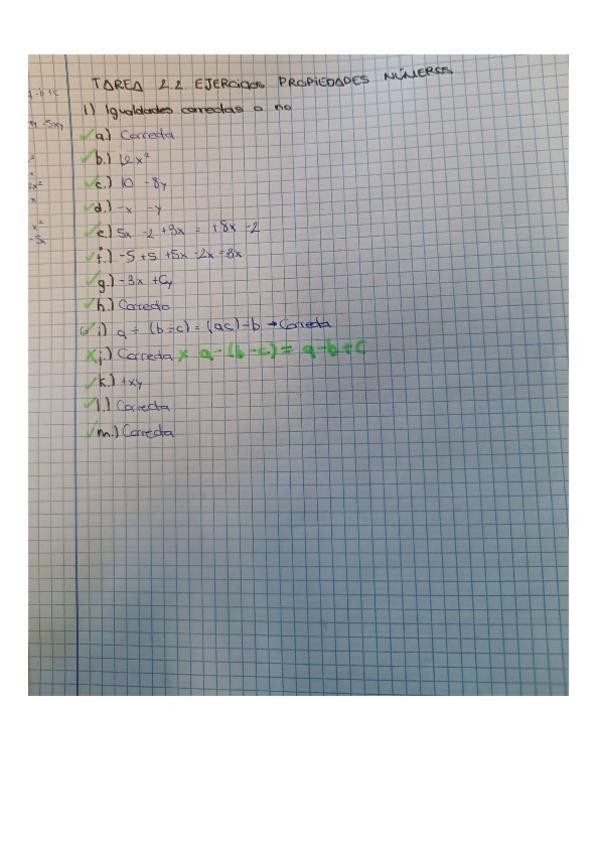 TAREA 2.2. EJERCICIOS PROPIEDADES NÚMEROS
1) Igualdades correctas o no
a.) Correcta
b.) 12x²
c.) 10 -8y
d.) -x -y
e.) 5x -2 +3x = +8x -2
f.) -5 +5 +5x -2x = 3x
g.) -3x + 6y
h.) Correcto
i.) a ÷ (b÷c) = (ac)÷b → Correcta
x j.) Correcta x a-(b-c) = a-b+c
k.) +xy
l.) Correcta
m.) Correcta
-b+c
-5xy
2x²
x
x²
-5x